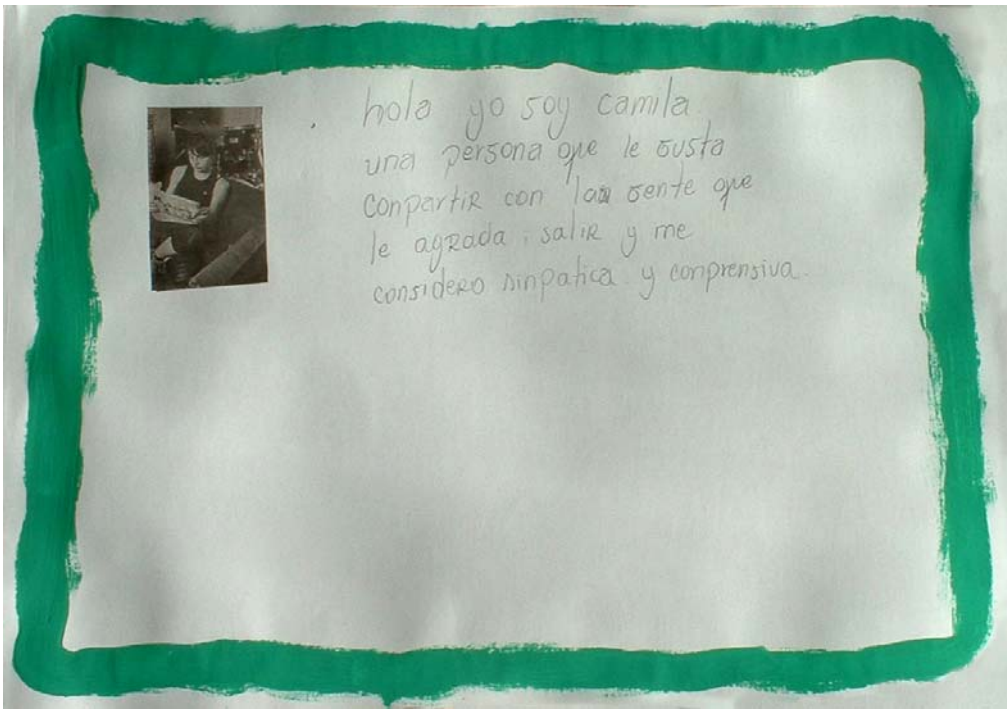 hola yo soy camila.
una persona que le gusta
conpartir con la gente que
le agrada, salir y me
considero sinpatica y conprensiva.